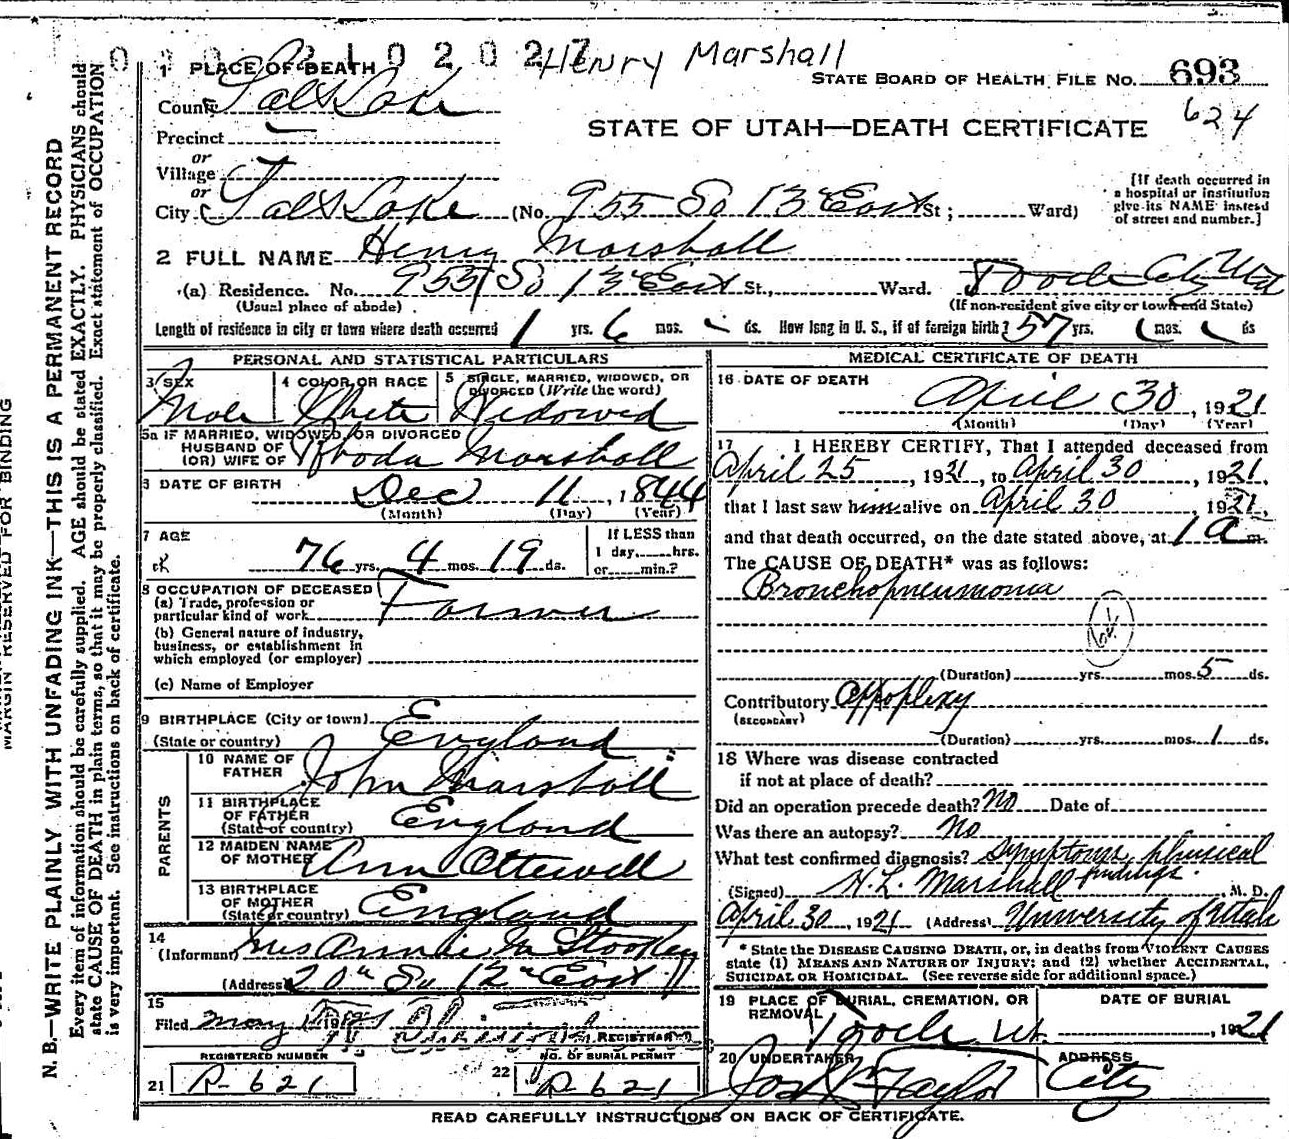 2102027
Henry Marshall
STATE BOARD OF HEALTH FILE NO. 693
624
1 PLACE OF DEATH
County Salt Lake
STATE OF UTAH—DEATH CERTIFICATE
Precinct
or
Village
or
City Salt Lake (No. 955 So 13" East St; Ward)
[If death occurred in
a hospital or institution
give its NAME instead
of street and number.]
2 FULL NAME Henry Marshall
(a) Residence. No. 955 So 13" East St., Ward. Tooele City Utah
(Usual place of abode) (If non-resident give city or town and State)
Length of residence in city or town where death occurred 1 yrs. 6 mos. ds. How long in U. S., if of foreign birth? 57 yrs. mos. ds
PERSONAL AND STATISTICAL PARTICULARS
3 SEX
Male
4 COLOR OR RACE
White
5 SINGLE, MARRIED, WIDOWED, OR
DIVORCED (Write the word)
Widowed
5a IF MARRIED, WIDOWED, OR DIVORCED
HUSBAND OF
(OR) WIFE OF Rhoda Marshall
6 DATE OF BIRTH
Dec 11, 1844
(Month) (Day) (Year)
7 AGE
76 yrs. 4 mos. 19 ds.
If LESS than
1 day, hrs.
or min.?
8 OCCUPATION OF DECEASED
(a) Trade, profession or
particular kind of work Farmer
(b) General nature of industry,
business, or establishment in
which employed (or employer)
(c) Name of Employer
9 BIRTHPLACE (City or town)
(State or country) England
PARENTS
10 NAME OF
FATHER John Marshall
11 BIRTHPLACE
OF FATHER
(State or country) England
12 MAIDEN NAME
OF MOTHER Ann Ottewell
13 BIRTHPLACE
OF MOTHER
(State or country) England
14
(Informant Mrs Annie M Stookey
(Address 20" So 12" East
15
Filed May 1 192 REGISTRAR
REGISTERED NUMBER
21 R-621
NO. OF BURIAL PERMIT
22 R-621
MEDICAL CERTIFICATE OF DEATH
16 DATE OF DEATH
April 30, 1921
(Month) (Day) (Year)
17 I HEREBY CERTIFY, That I attended deceased from
April 25, 1921, to April 30, 1921,
that I last saw him alive on April 30, 1921,
and that death occurred, on the date stated above, at 1 a m.
The CAUSE OF DEATH* was as follows:
Bronchopneumonia
(Duration) yrs. mos. 5 ds.
Contributory Appoplexy
(SECONDARY)
(Duration) yrs. mos. 1 ds.
18 Where was disease contracted
if not at place of death?
Did an operation precede death? No Date of
Was there an autopsy? No
What test confirmed diagnosis? Symptoms, physical
findings.
(Signed) H. L. Marshall M. D.
April 30, 1921 (Address) University of Utah
*State the DISEASE CAUSING DEATH, or, in deaths from VIOLENT CAUSES
state (1) MEANS AND NATURE OF INJURY; and (2) whether ACCIDENTAL,
SUICIDAL OR HOMICIDAL. (See reverse side for additional space.)
19 PLACE OF BURIAL, CREMATION, OR
REMOVAL Tooele Ut.
DATE OF BURIAL
, 1921
20 UNDERTAKER
Jos Wm Taylor
ADDRESS
City
READ CAREFULLY INSTRUCTIONS ON BACK OF CERTIFICATE.
MARGIN RESERVED FOR BINDING
N. B.—WRITE PLAINLY WITH UNFADING INK—THIS IS A PERMANENT RECORD
Every item of information should be carefully supplied. AGE should be stated EXACTLY. PHYSICIANS should
state CAUSE OF DEATH in plain terms, so that it may be properly classified. Exact statement of OCCUPATION
is very important. See instructions on back of certificate.